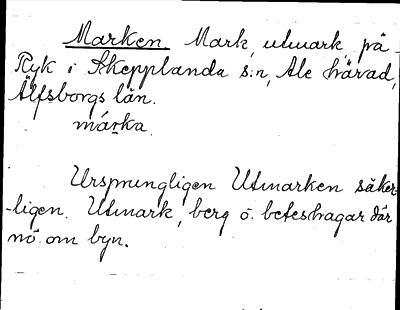 Marken. Mark, utmark, på
Ryk i Skepplanda s:n, Ale härad,
Älfsborgs län.
márka.
Ursprungligen Utmarken säker-
ligen. Utmark, berg o. beteshagar där
nö. om byn.